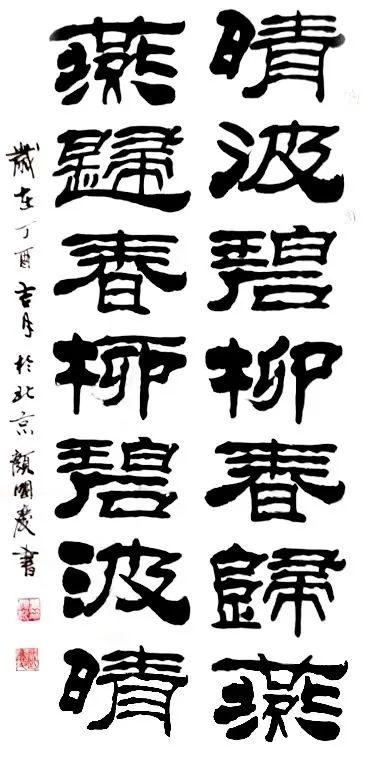 晴波碧柳春歸燕
燕歸春柳碧波晴
歲在丁酉吉月於北京顏國慶書